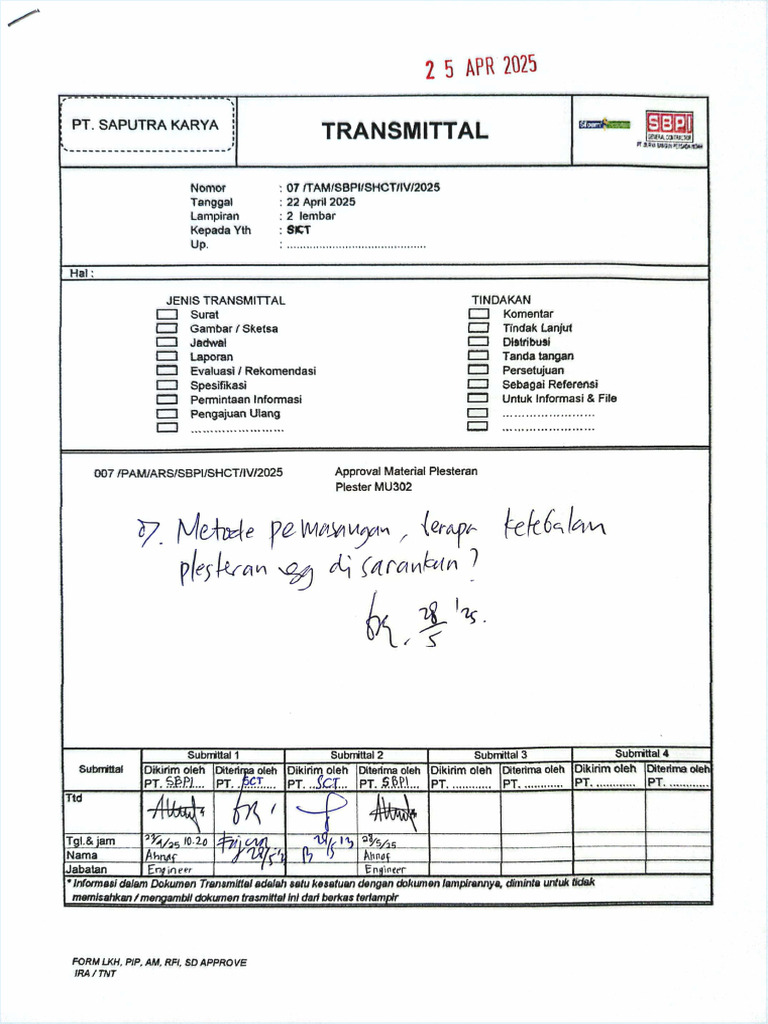 25 APR 2025
PT. SAPUTRA KARYA
TRANSMITTAL
SBPI
GENERAL CONTRACTOR
Nomor : 07 /TAM/SBPI/SHCT/IV/2025
Tanggal : 22 April 2025
Lampiran : 2 lembar
Kepada Yth :
Up. : ..........................................
Hal :
JENIS TRANSMITTAL
Surat
Gambar / Sketsa
Jadwal
Laporan
Evaluasi / Rekomendasi
Spesifikasi
Permintaan Informasi
Pengajuan Ulang
........................
TINDAKAN
Komentar
Tindak Lanjut
Distribusi
Tanda tangan
Persetujuan
Sebagai Referensi
Untuk Informasi & File
........................
........................
007 /PAM/ARS/SBPI/SHCT/IV/2025 Approval Material Plesteran
Plester MU302
Metode pemasangan, berapa ketebalan
plesteran yg disarankan?
28/5 '25.
Submittal Submittal 1 Submittal 2 Submittal 3 Submittal 4
Dikirim oleh Diterima oleh Dikirim oleh Diterima oleh Dikirim oleh Diterima oleh Dikirim oleh Diterima oleh
PT. SBPI PT. SCT PT. SCT PT. SBPI PT. ............ PT. ............ PT. ............ PT. ............
Ttd
Tgl.& jam 10.20 28/5/25
Nama Ahnaf Ahnaf
Jabatan Engineer Engineer
* Informasi dalam Dokumen Transmittal adalah satu kesatuan dengan dokumen lampirannya, diminta untuk tidak
memisahkan / mengambil dokumen trasmittal ini dari berkas terlampir
FORM LKH, PIP, AM, RFI, SD APPROVE
IRA / TNT